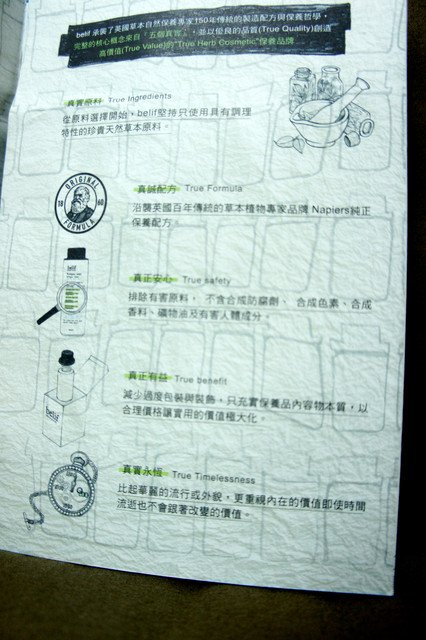 belif 承襲了英國草本自然保養專家150年傳統的製造配方與保養哲學,
完整的核心概念來自 "五個真實", 並以優良的品質(True Quality)創造
高價值(True Value)的"True Herb Cosmetic"保養品牌
真實原料 True Ingredients
從原料選擇開始, belif堅持只使用具有調理
特性的珍貴天然草本原料。
ORIGINAL
18 60
FORMULA
真誠配方 True Formula
沿襲英國百年傳統的草本植物專家品牌 Napiers純正
保養配方。
belif
真正安心 True safety
排除有害原料, 不含合成防腐劑、 合成色素、合成
香料、礦物油及有害人體成分。
belif
真正有益 True benefit
減少過度包裝與裝飾, 只充實保養品內容物本質, 以
合理價格讓實用的價值極大化。
真實永恆 True Timelessness
比起華麗的流行或外貌, 更重視內在的價值即使時間
流逝也不會跟著改變的價值。